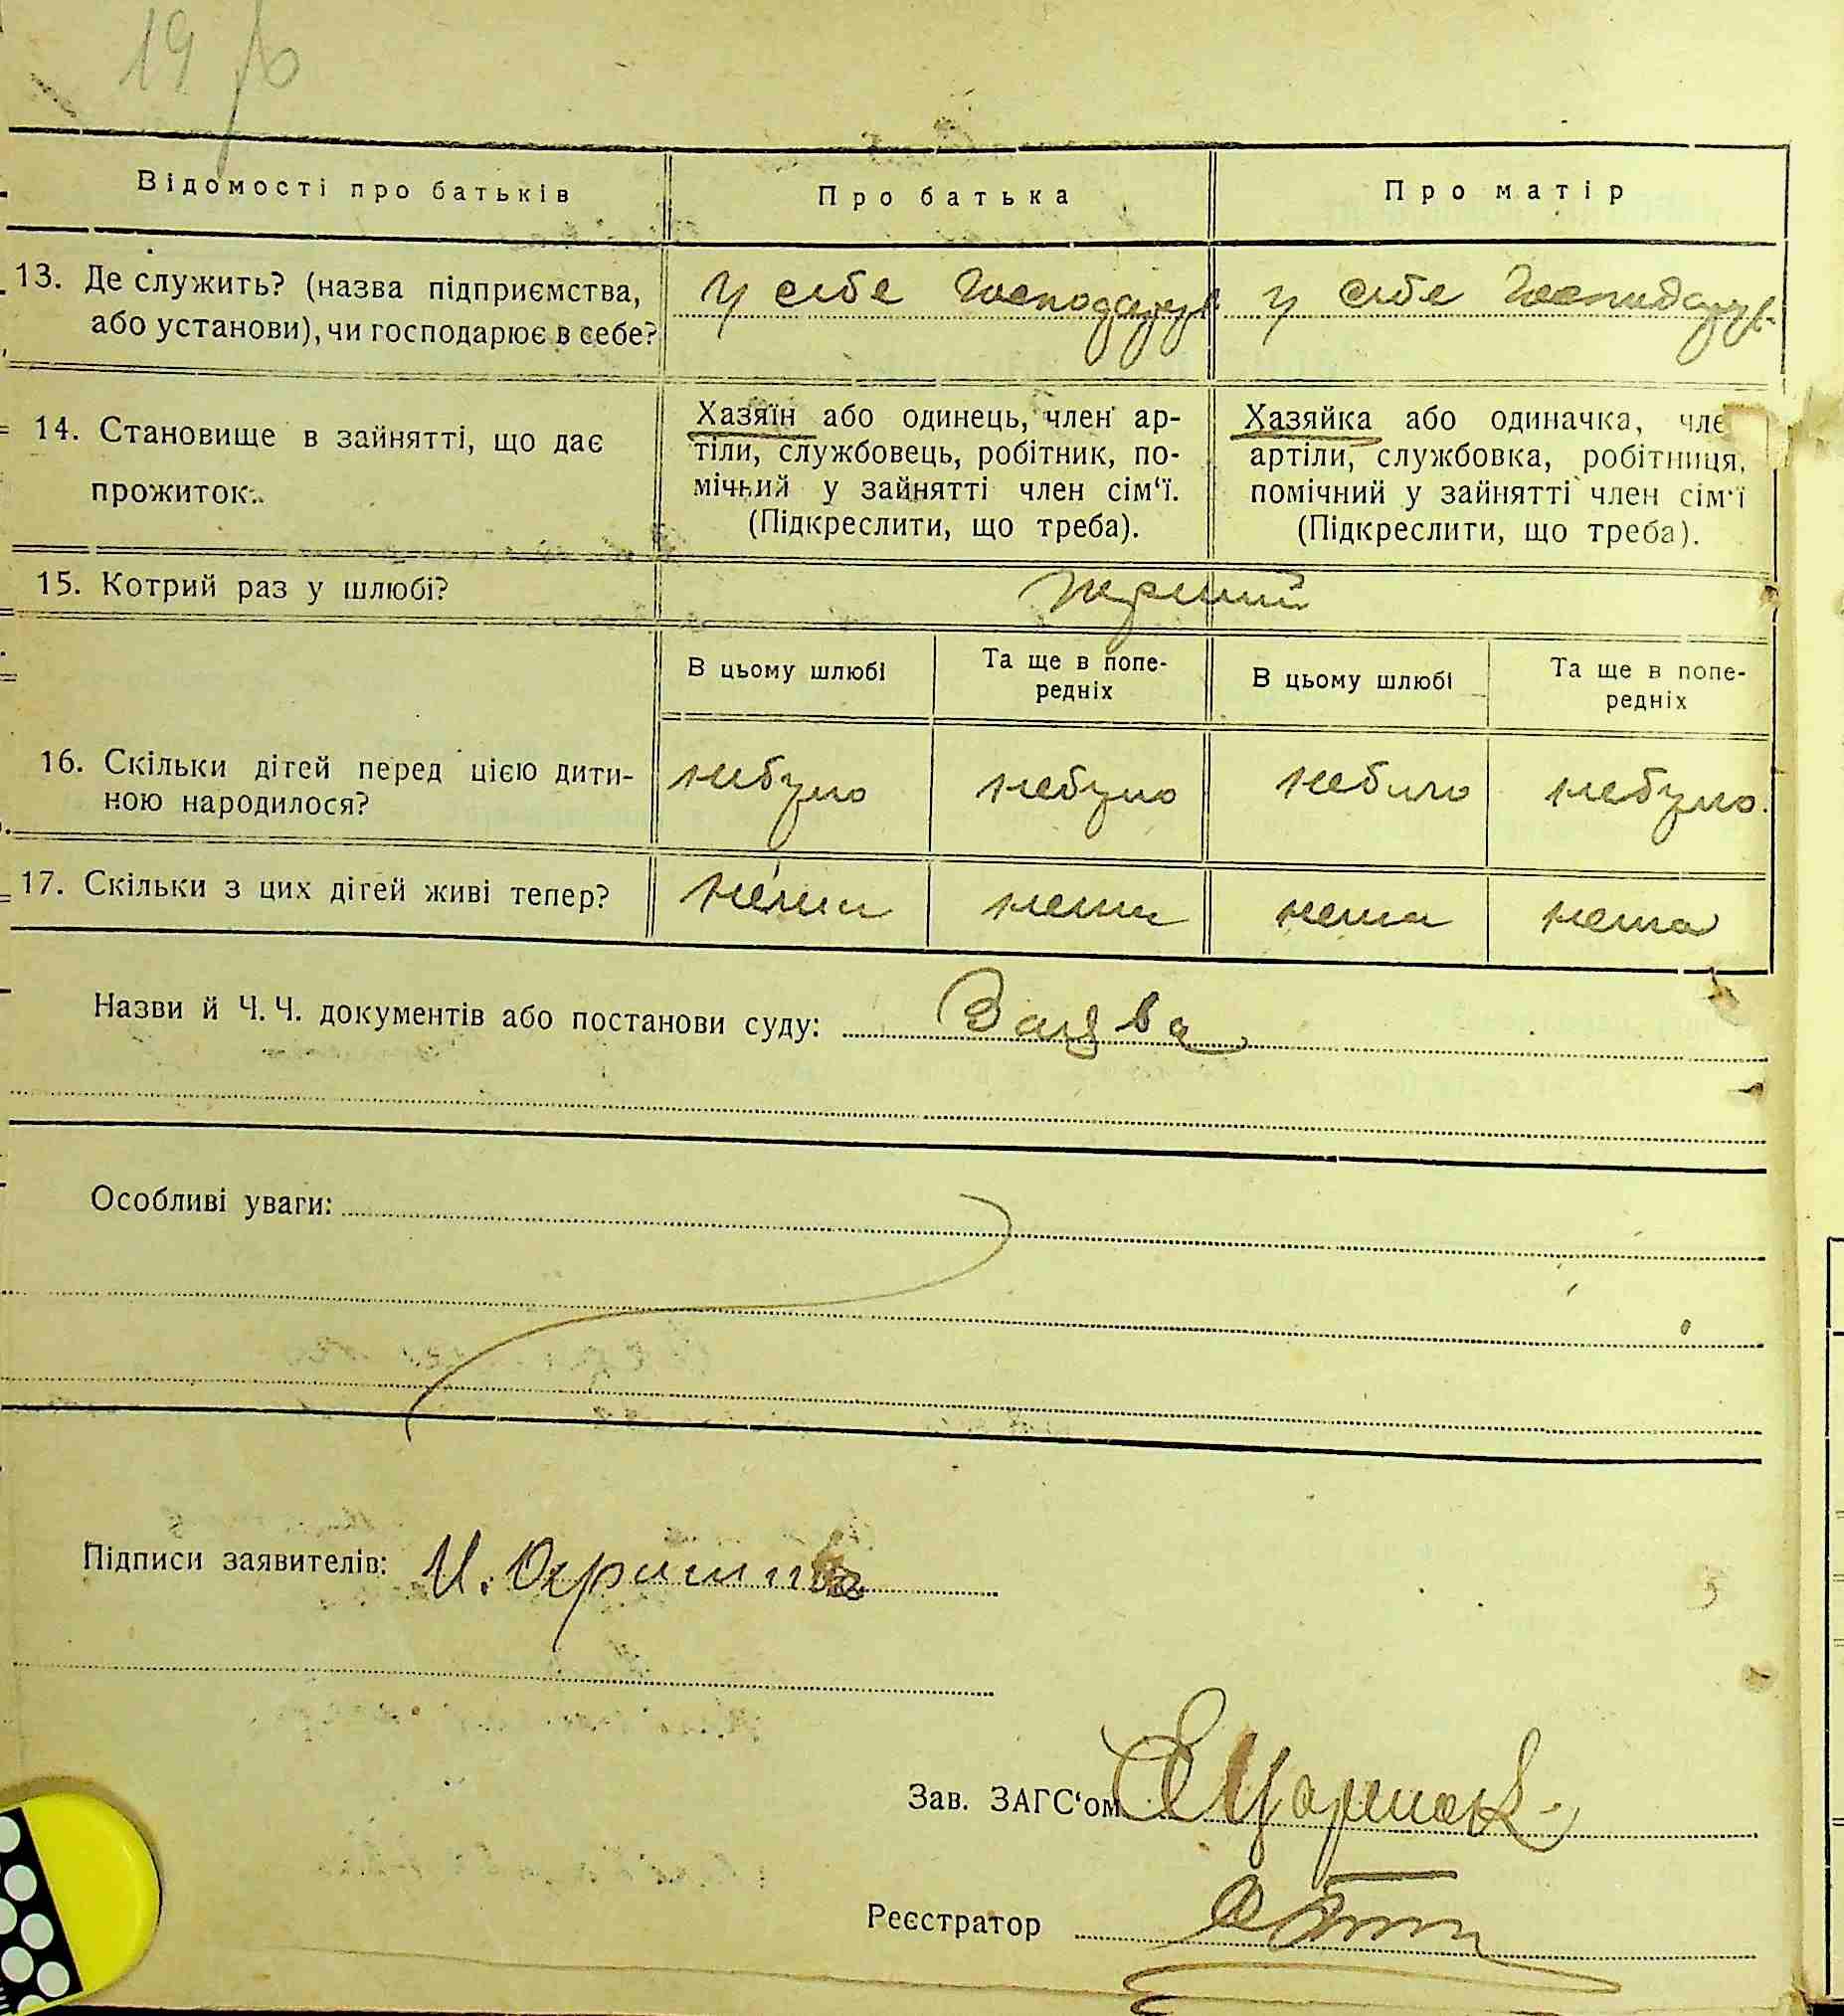 19
Відомості про батьків
Про батька
Про матір
13. Де служить? (назва підприємства,
або установи), чи господарює в себе?
у себе господарує
у себе господарує
14. Становище в зайнятті, що дає
прожиток.
Хазяїн або одинець, член ар-
тіли, службовець, робітник, по-
мічний у зайнятті член сім‘ї.
(Підкреслити, що треба).
Хазяйка або одиначка, чле
артіли, службовка, робітниця,
помічний у зайнятті член сім‘ї
(Підкреслити, що треба).
15. Котрий раз у шлюбі?
перший
В цьому шлюбі
Та ще в попе-
редніх
В цьому шлюбі
Та ще в попе-
редніх
16. Скільки дітей перед цією дити-
ною народилося?
небуло
небуло
небило
небуло.
17. Скільки з цих дітей живі тепер?
нема
нема
нема
нема
Назви й Ч. Ч. документів або постанови суду:
Заява
Особливі уваги:
Підписи заявителів: И.
Зав. ЗАГС‘ом
Реєстратор